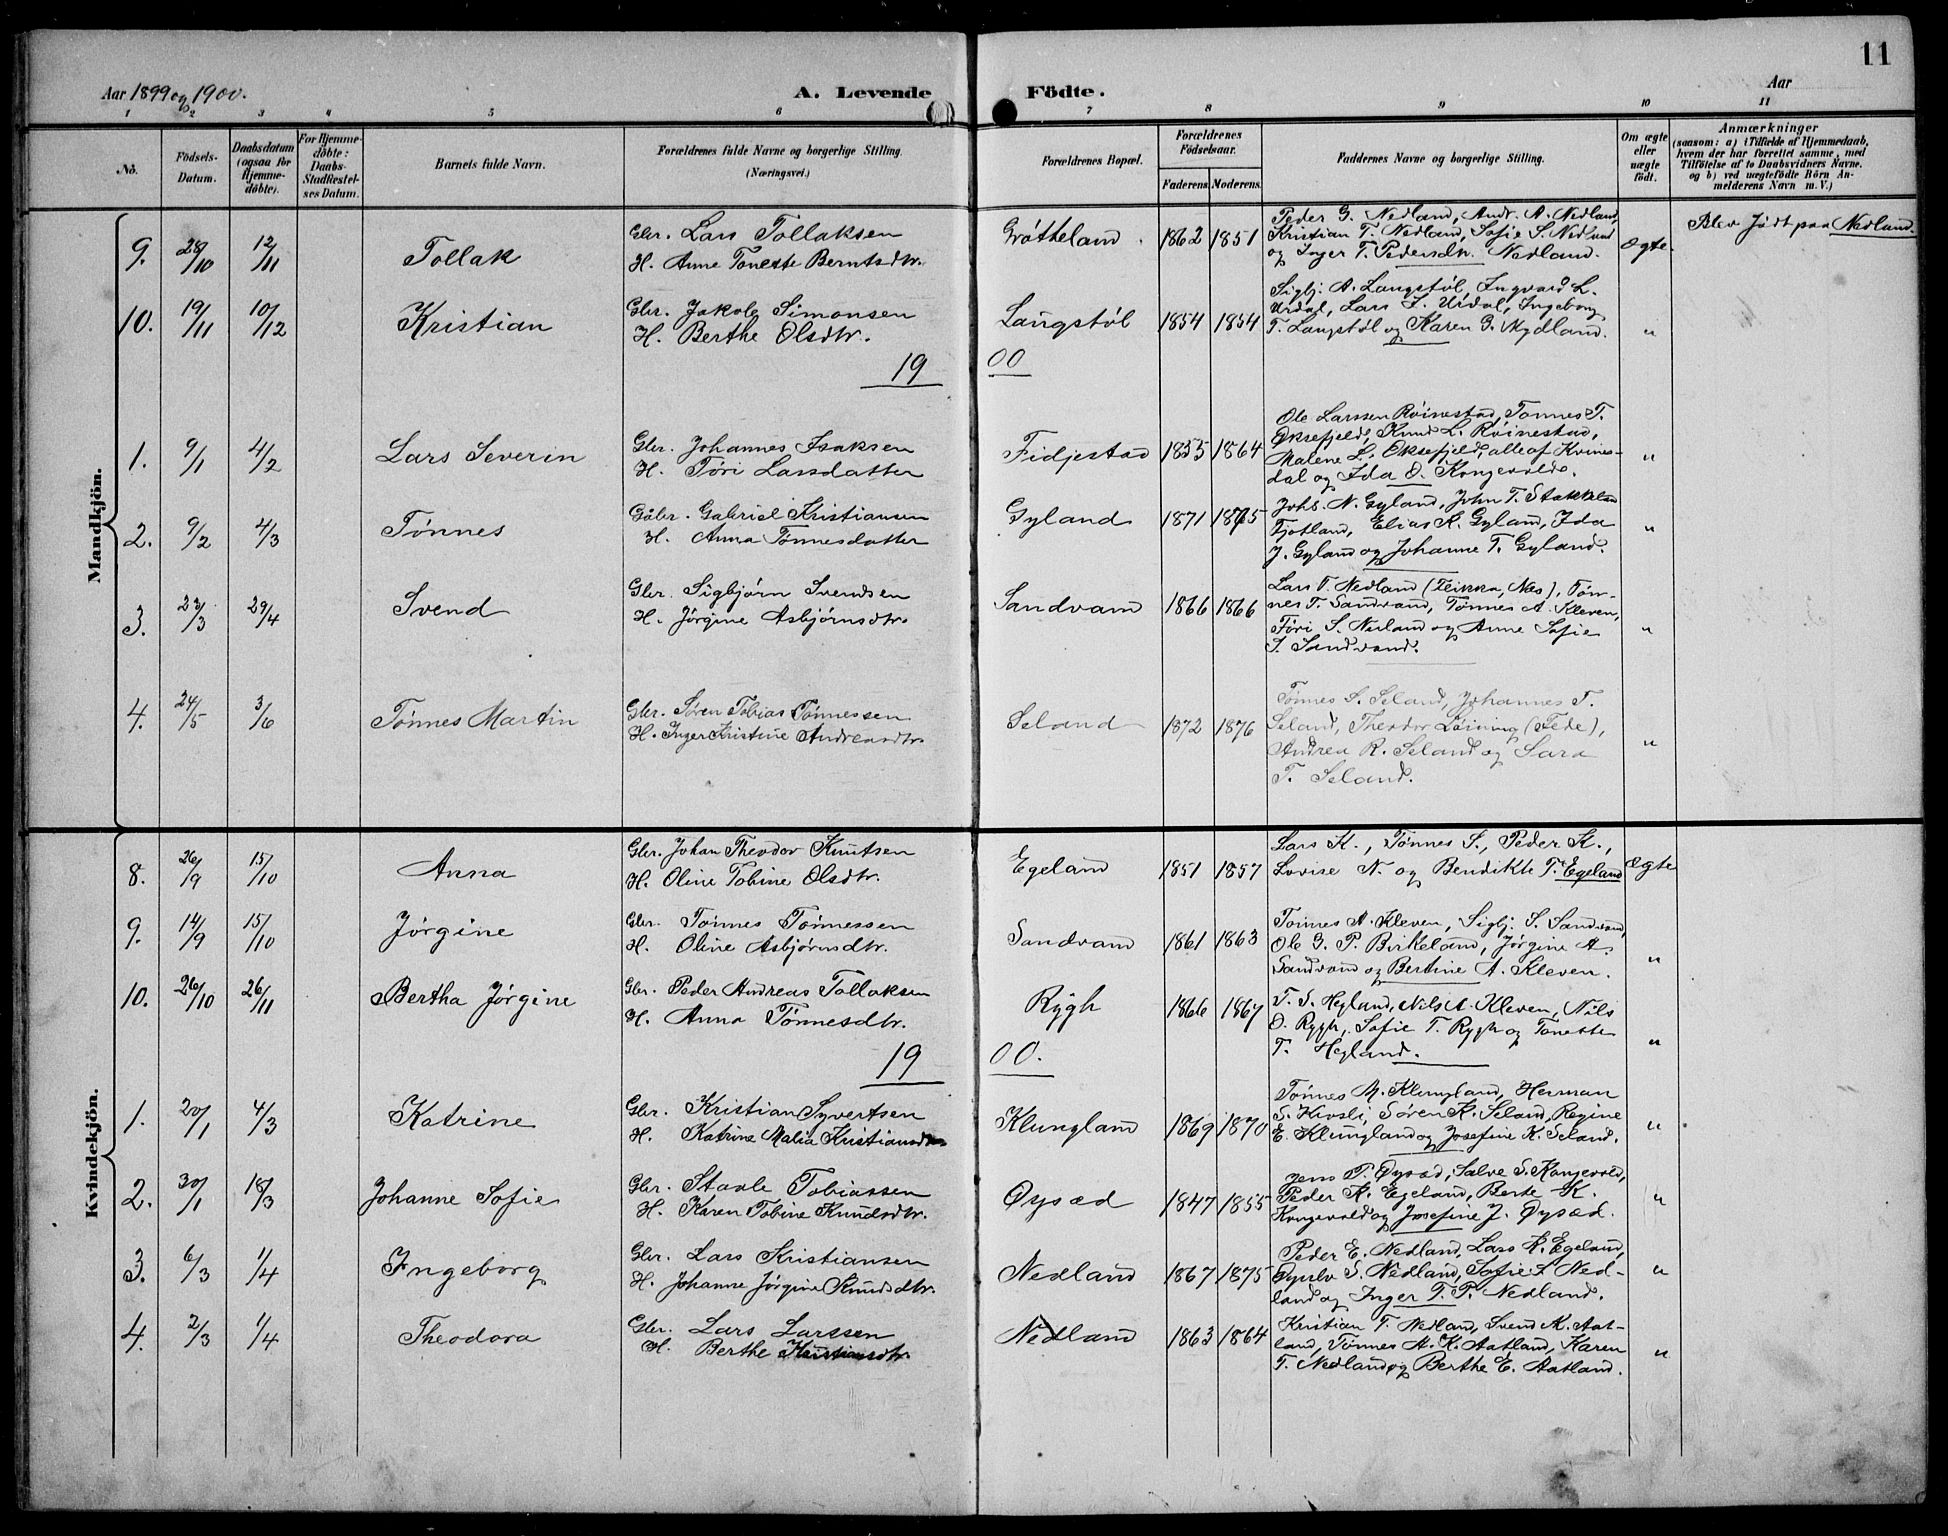 11
Aar 1899 og 1900. A. Levende Födte. Aar
1 2 3 4 5 6 7 8 9 10 11
No. Födsels-Datum. Daabsdatum (ogsaa for Hjemme-döbte). For Hjemme-döbte: Daabs-Stadfæstel-ses Datum. Barnets fulde Navn. Forældrenes fulde Navne og borgerlige Stilling. (Næringsvei.) Forældrenes Bopæl. Forældrenes Födselsaar. Faderens. Moderens. Faddernes Navne og borgerlige Stilling. Om ægte eller uægte födt. Anmærkninger (saasom: a) i Tilfælde af Hjemmedaab, hvem der har forrettet samme, med Tilföielse af to Daabsvidners Navne. og b) ved uægtefödte Börn An-melderens Navn m. V.)
Mandkjön.
9. 28/10 12/11 Tollak Gbr. Lars Tollaksen
H. Anne Tonette Berntsdtr. Grøtteland. 1862 1851 Peder G. Nedland, Andr. A. Nedland,
Kristian T. Nedland, Sofie S. Nedland
og Inger T. Pedersdtr. Nedland. Ægte. Blev født paa Nedland.
10. 19/11 10/12 Kristian Gbr. Jakob Simonsen
H. Berthe Olsdtr. Langstøl 1854 1854 Sigbj. A. Langstøl, Ingvard L.
Urdal, Lars I. Urdal, Ingeborg
T. Langstøl og Karen G. Mydland. "
19 00
1. 9/1 4/2 Lars Severin Gbr. Johannes Isaksen
H. Tøri Larsdatter Fidjestad 1855 1864 Ole Larssen Røinestad, Tønnes T.
Øksefjeld, Knud L. Røinestad,
Malene L. Øksefjeld, alle af Kvines-
dal og Ida O. Kongevold. "
2. 9/2 4/3 Tønnes Gbr. Gabriel Kristiansen
H. Anna Tønnesdatter Gyland 1871 1875 Johs. N. Gyland, John T. Stakkeland
Fjotland, Elias K. Gyland, Ida
J. Gyland og Johanne T. Gyland. "
3. 23/3 29/4 Svend Gbr. Sigbjørn Svendsen
H. Jørgine Asbjørnsdtr. Sandvand 1866 1866 Lars T. Nedland (Nes), Tøn-
nes T. Sandvand, Tønnes A. Kleven,
Tøri S. Nuland og Anne Sofie
S. Sandvand. "
4. 24/5 3/6 Tønnes Martin Gbr. Søren Tobias Tønnessen
H. Inger Kristine Andreasdtr. Seland 1872 1876 Tønnes S. Seland, Johannes T.
Seland, Theodor Løining (Fede),
Andrea R. Seland og Sara
T. Seland. "
Kvindekjön.
8. 26/9 15/10 Anna Gbr. Johan Theodor Knutsen
H. Oline Tobine Olsdtr. Egeland 1851 1857 Lars K., Tønnes S., Peder K.,
Lovise N. og Bendikte T. Egeland Ægte
9. 14/9 15/10 Jørgine Gbr. Tønnes Tønnessen
H. Oline Asbjørnsdtr. Sandvand 1861 1863 Tønnes A. Kleven, Sigbj. S. Sandvand,
Ole G. P. Birkeland, Jørgine A.
Sandvand og Bertine A. Kleven. "
10. 26/10 26/11 Bertha Jørgine Gbr. Peder Andreas Tollaksen
H. Anna Tønnesdtr. Rygh 1866 1867 T. S. Hegland, Nils A. Kleven, Nils
O. Rygh, Sofie T. Rygh og Tonette
T. Hegland. "
19 00.
1. 20/1 4/3 Katrine Gbr. Kristian Syvertsen
H. Katrine Malia Kristiansdtr. Klungland 1869 1870 Tønnes M. Klungland, Herman
S. Kvosli, Søren K. Seland, Regine
E. Klungland og Josefine K. Seland. "
2. 30/1 18/3 Johanne Sofie Gbr. Staale Tobiassen
H. Karen Tobine Knudsdtr. Øysæd 1847 1855 Jens T. Øysæd, Salve S. Kongevold,
Peder K. Egeland, Berte K.
Kongevold og Josefine J. Øysæd. "
3. 6/3 1/4 Ingeborg Gbr. Lars Kristiansen
H. Johanne Jørgine Knudsdtr. Nedland 1867 1875 Peder E. Nedland, Lars K. Egeland,
S. Nedland, Sofie S. Ned-
land og Inger T. P. Nedland. "
4. 2/3 1/4 Theodora Gbr. Lars Larssen
H. Berthe Kristiansdtr. Nedland 1863 1864 Kristian T. Nedland, Svend K. Aat-
land, Tønnes A. K. Aatland, Karen
T. Nedland og Berthe E. Aatland. "